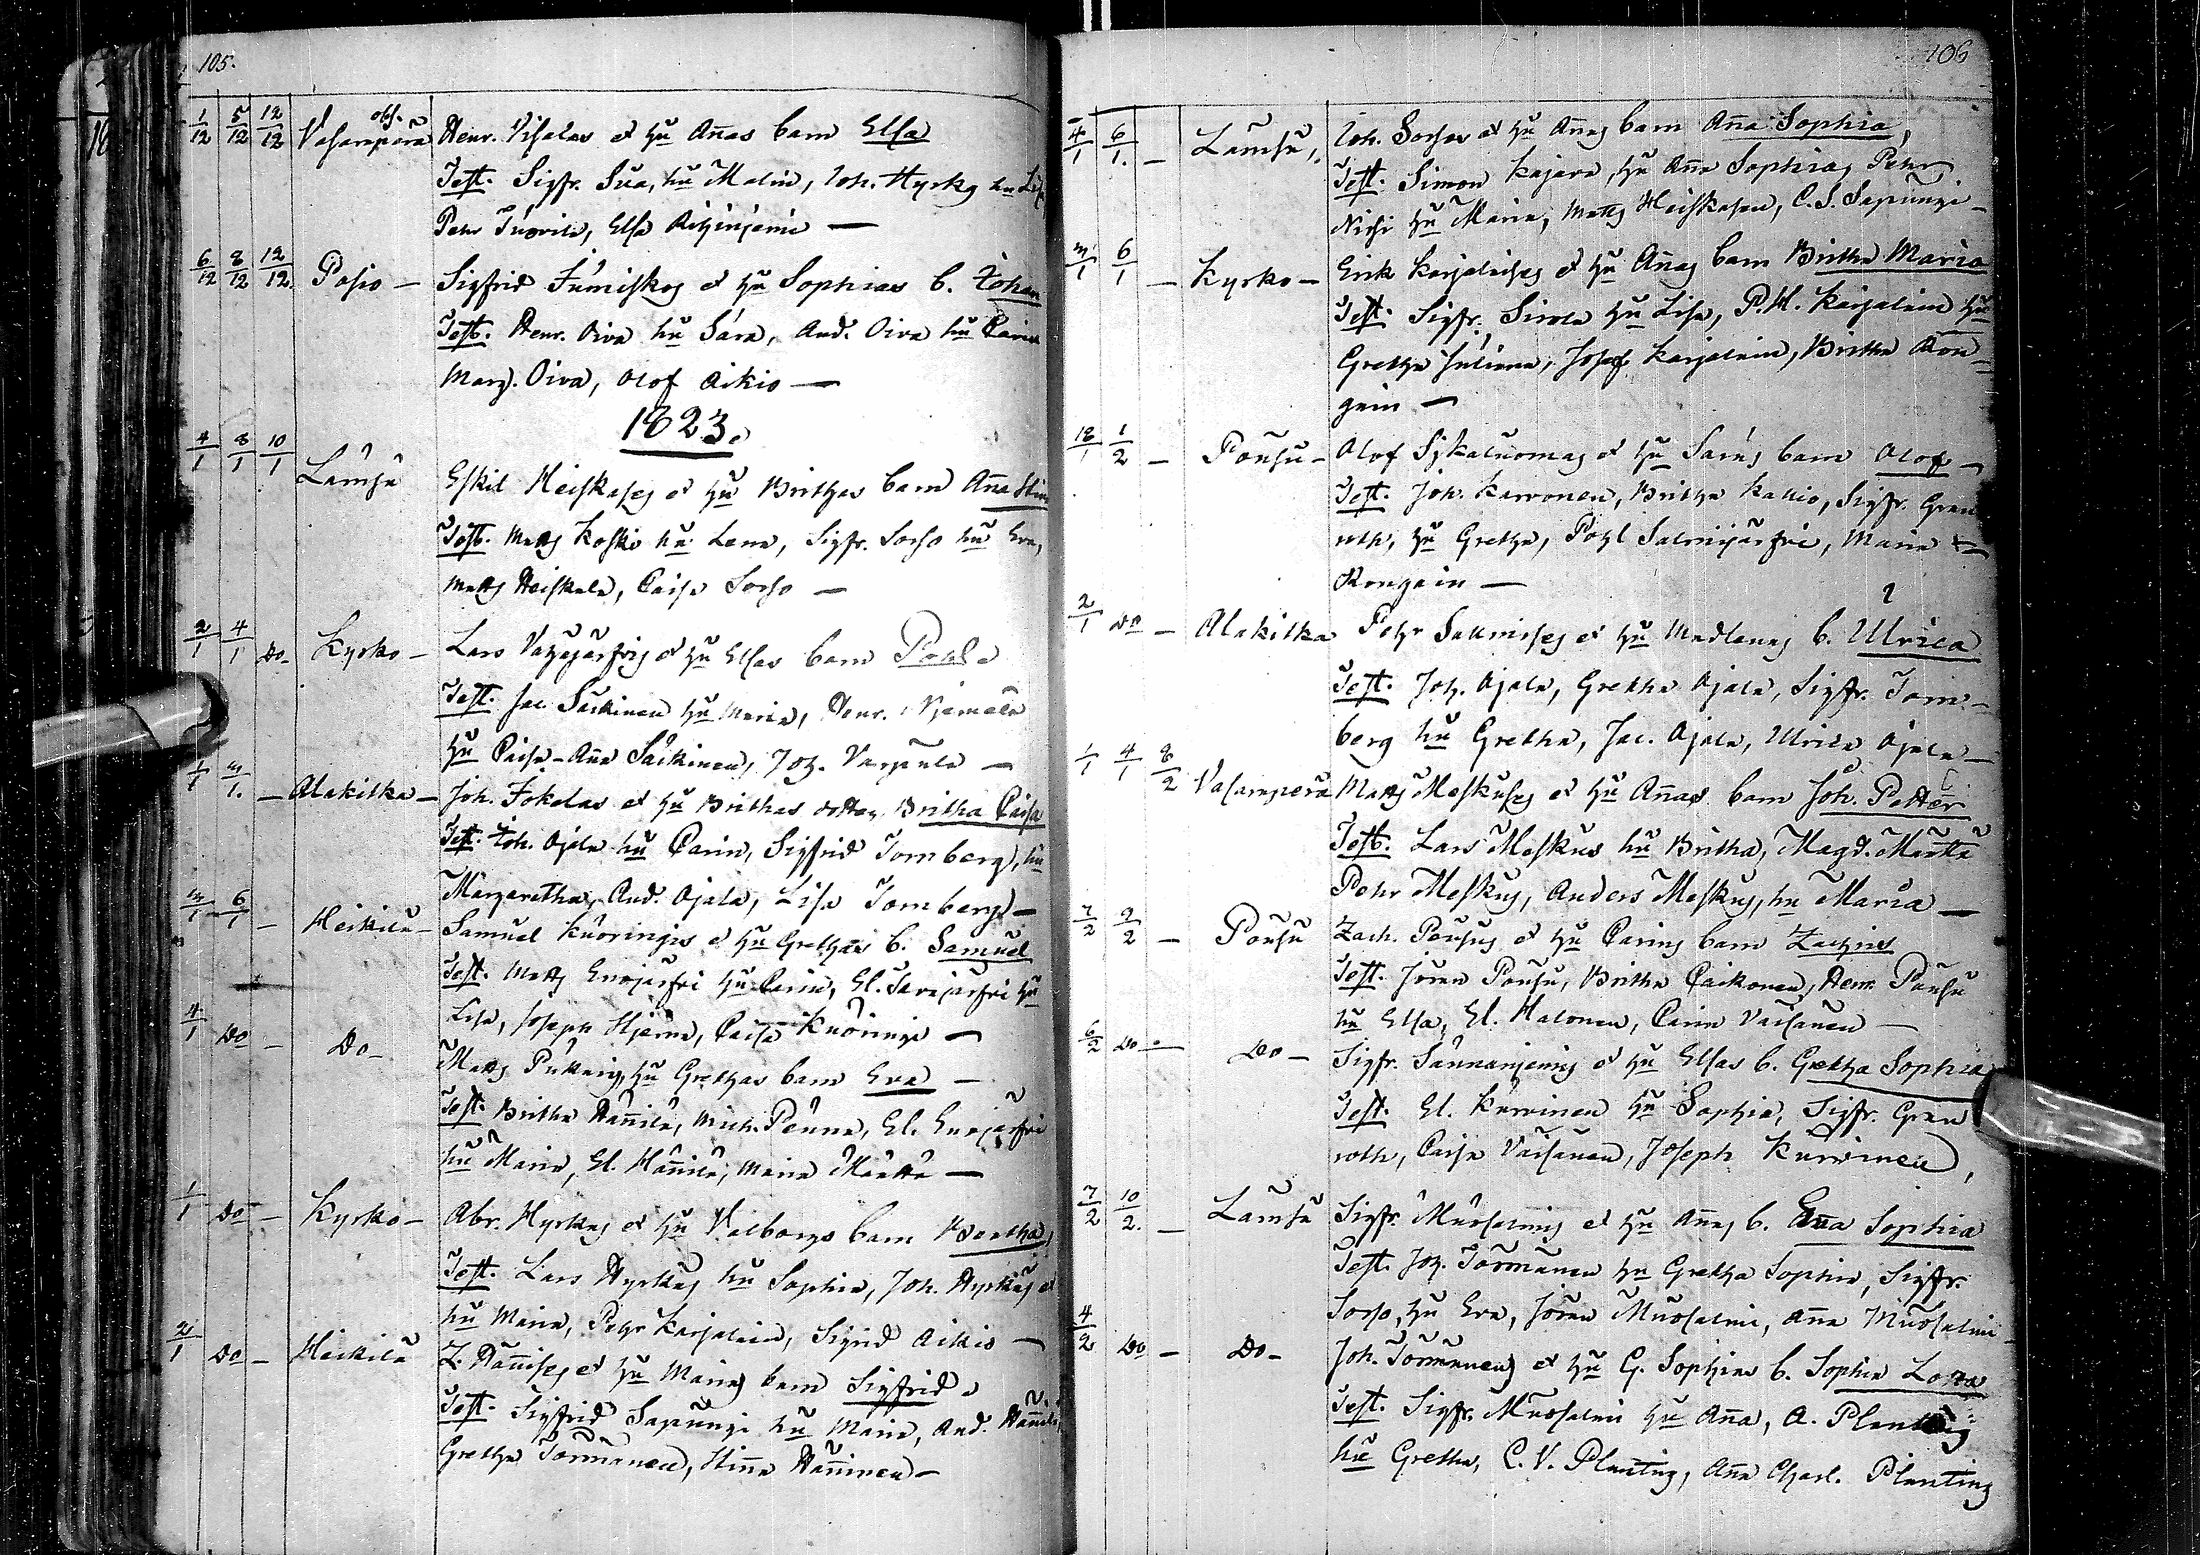 105.
1/12 5/12 12/12 Vasarapärä obs. Henr. Visalas et hu Annas barn Elsa
Test. Sigfr. Sua, hu Malin, Joh. Hyrkg hu Lis
Pehr Tuovila, Elsa
6/12 8/12 12/12 Posio – Sigfrid Jumiskos et hu Sophias b. Johan
Test. Henr. Oiva hu Sara, And. Oiva hu Carin
Marg. Oiva, Olof Aikio —
1823.
4/1 8/1 10/1 Lämsä Eskil Heiskaseg et hu Brithas barn Anna Stin
Test. Matts Koski hu Lena, Sigfr. Sorso hu Eva,
Matts Heiskala, Caisa Sorso —
2/1 4/1 Do Kyrko – Lars et hu Elsas barn Pohl
Test. Jac. Säkkinen hu Maria, Henr. Njemelä
hu Caisa – Anna Säkkinen, Joh. —
1/1 3/1. – Alakitka – Joh. Jokelas et hu Brithas dotter Britha Caisa
Test. Joh. Ojala hu Carin, Sigfrid Tornberg, hu
Margaretha, And. Ojala, Lisa Tornberg —
3/1 6/1 – Heikilä – Samuel Kuoringis et hu Grethas b. Samuel
Test. Matts Enojärfvi hu Carin, El. hu
Lisa, Joseph Hjerna, Caisa Kuoringi —
4/1 Do – Do – Matts hu Grethas barn Eva —
Test. Britha Hännilä, Mich. Penna, El. Enojärfvi
hu Maria, El. Hännilä, Maria Määttä —
1/1 Do – Kyrko – Abr. Hyrkes et hu Valborgs barn Bertha,
Test. Lars Hyrkäs hu Sophia, Joh. Hyrkäs et
hu Maria, Pehr Karjalain, Sigrid Aikio —
2/1 Do – Heikilä Z. Hänniseg et hu Marias barn Sigfrid
Test. Sigfrid Sapungi hu Maria, And. Hännilä,
Gretha Törmänen, Stina Hänninen —
106
4/1 6/1. – Lämsä, Joh. Sorsas et hu Annas barn Anna Sophia,
Test. Simon Kajava, hu Anna Sophia, Pehr
Nissi hu Maria, Matts Heiskasen, C. S. Sapungi –
3/1 6/1 – Kyrko – Erik Karjalaises et hu Annas barn Britha Maria
Test. Sigfr. Sirola hu Lisa, P. H. Karjalain hu
Gretha Juliana, Josef Karjalain, Britha Ron=
gain —
18/1 1/2 – Pousu – Olof Sykaluomas et hu Saras barn Olof –
Test. Joh. Karvonen, Britha Kallio, Sigfr. Gran
roth, hu Gretha, Pohl Salmijärfvi, Maria
Rongain —
2/1 Do – Alakitka Pehr et hu Madlenas b. Ulrica
Test. Joh. Ojala, Gretha Ojala, Sigfr. Torn=
berg hu Gretha, Jac. Ojala, Ulrica Ojala –
1/1 4/1 8/2 Vasarapera Matts Moskuses et hu Annas barn Joh. Petter
Test. Lars Moskus hu Britha, Magd. Määttä
Pehr Moskus, Anders Moskus, hu Maria —
7/2 9/2 – Pousu Zach. Pousus et hu Carins barn Zachris
Test. Jöran Pousu, Britha Caikonen, Henr. Pousu
hu Elsa, El. Halonen, Carin Väisänen —
6/2 Do – Do – Sigfr. et hu Elsas b. Gretha Sophia
Test. El. Kurvinen hu Sophia, Sigfr. Gran
roth, Caisa Väisänen, Joseph Kurvinen,
7/2 10/2. – Lämsä Sigfr. Muosalmis et hu Annas b. Anna Sophia
Test. Joh. Törmänen hu Gretha Sophia, Sigfr.
Sorso, hu Eva, Jöran Muosalmi, Anna Muosalmi –
4/2 Do – Do – Joh. Törmänens et hu G. Sophias b. Sophia Lovisa
Test. Sigfr. Muosalmi hu Anna, A. Planting
hu Gretha, C. V. Planting, Anna Charl. Planting